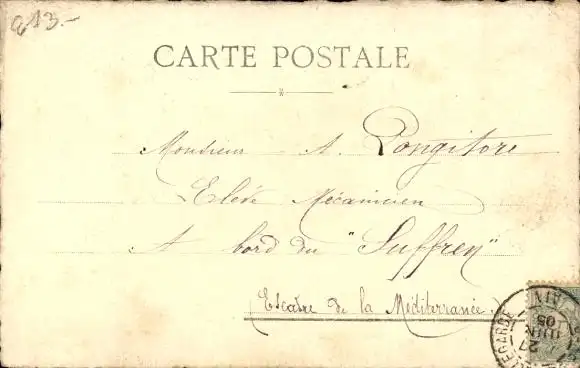 €13.-
CARTE POSTALE
Monsieur A. Pongitore
Elève Mécanicien
A bord du "Suffren"
Escadre de la Méditerranée.
BELLEGARDE
AIN
27
JUIN
05